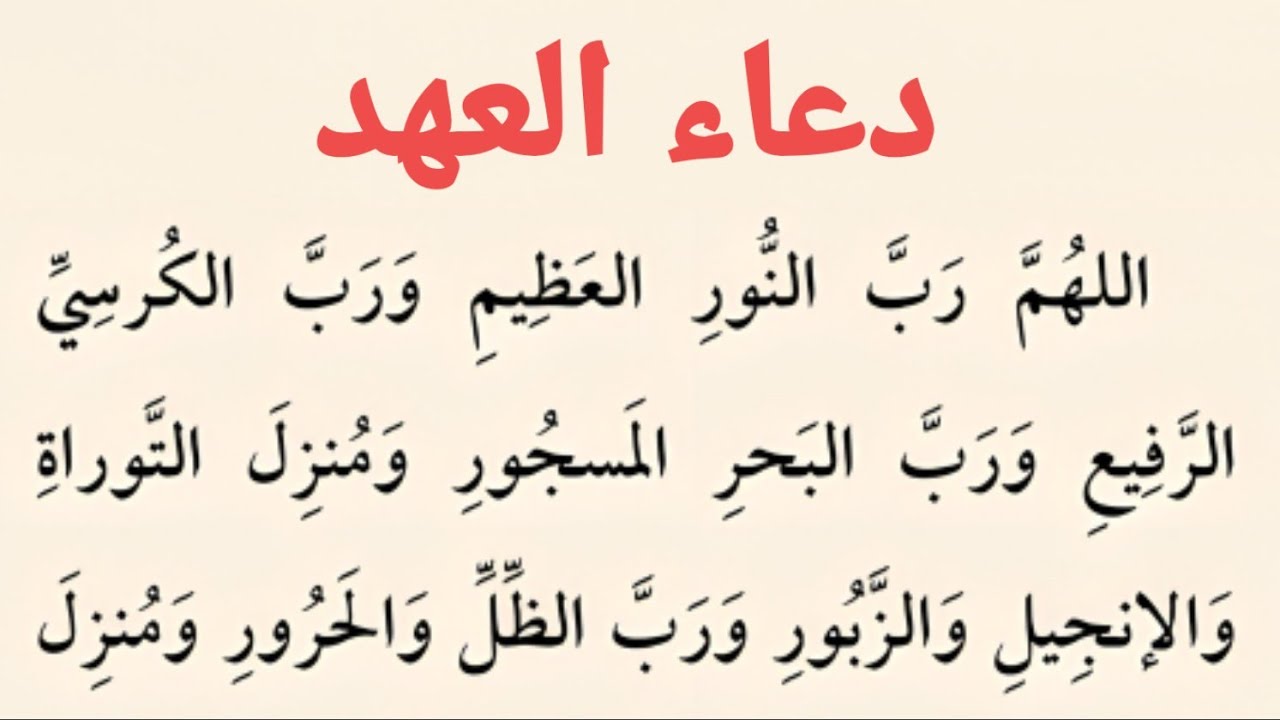 دعاء العهد
اللهُمَّ رَبَّ النُّورِ العَظِيمِ وَرَبَّ الكُرسِيِّ
الرَّفِيعِ وَرَبَّ البَحرِ المَسجُورِ وَمُنزِلَ التَّوراةِ
وَالإنجِيلِ وَالزَّبُورِ وَرَبَّ الظِّلِّ وَالحَرُورِ وَمُنزِلَ